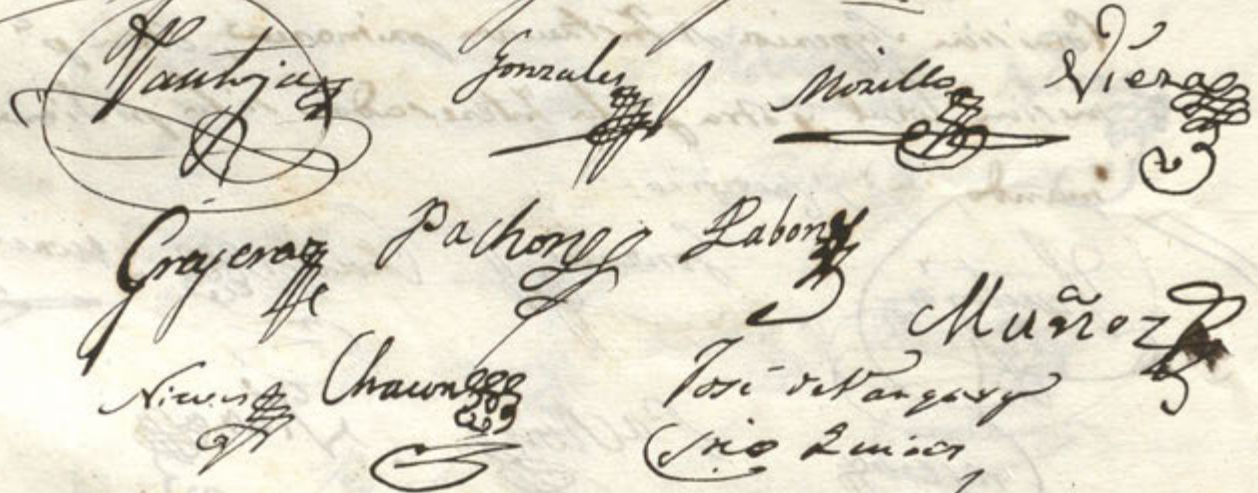 Pantoja Gonzales Morillo Viera
Grajera Pachon Rabon
Muñoz
Nieves Chacon José de Vargas y